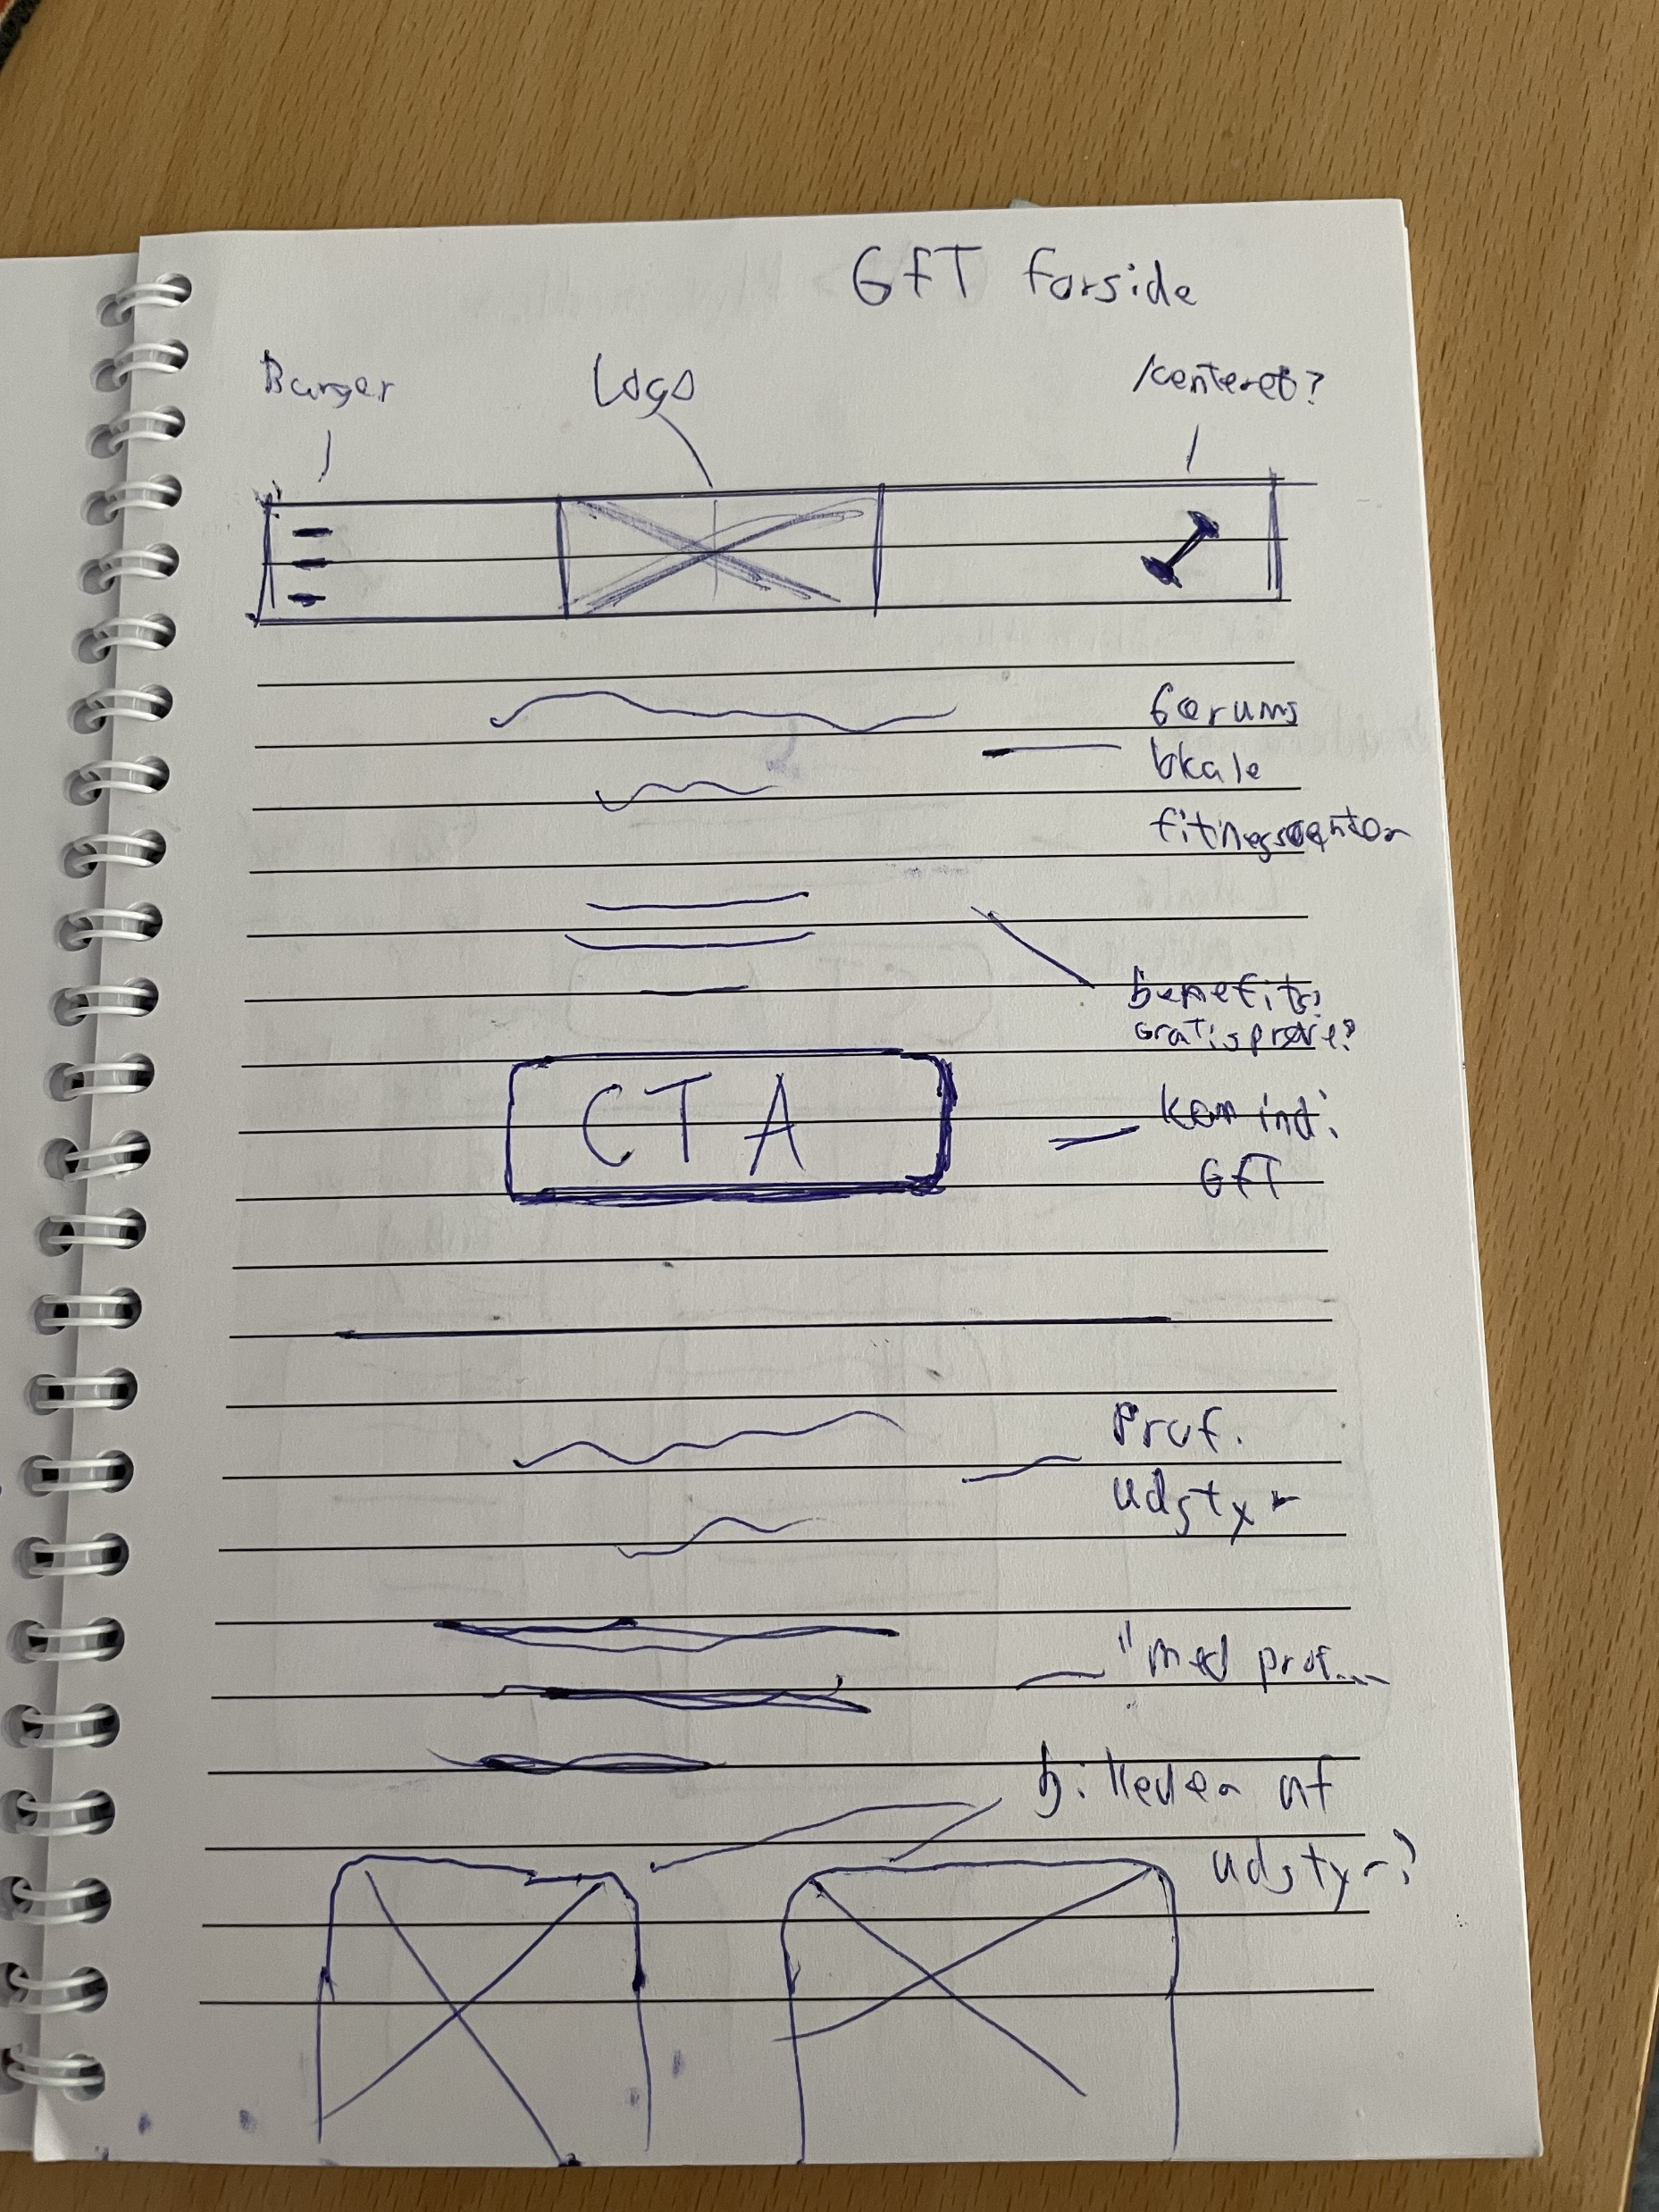 GFT forside
Burger
Logo
/centeret?
Gørums
lokale
fitnesscenter
benefits?
Gratis prøve?
CTA
kom ind i
GFT
Prof.
udstyr
"med prof...
billeder af
udstyr?